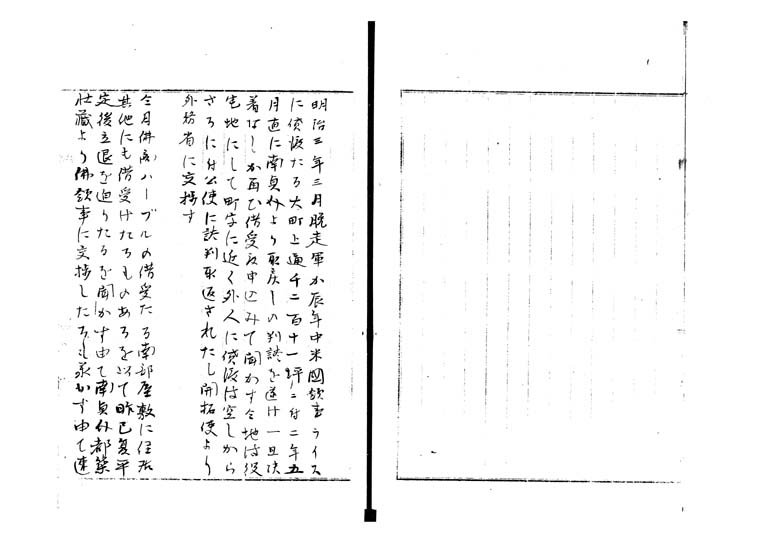 明治三年三月脱走軍か辰年中米國領事ライス
に貸渡たる大町上通千二百十一坪ニ付二年五
月直に南貞介より取戻しの判談を遂け一旦決
着なしか再ひ借受度申込みて聞かす今地は役
宅地にして町宇に近く外人に貸渡は宜しから
さるに付公使に談判取返されたし開拓使より
外務省に交接す
今月佛商ハーブルの借受たる南部屋敷に住居
其他にも借受けたるものあるを以て昨巳复平
定後立退を迫りたるを聞かす由て南貞介都築
壮藏より佛領事に交接したるも承かす由て速